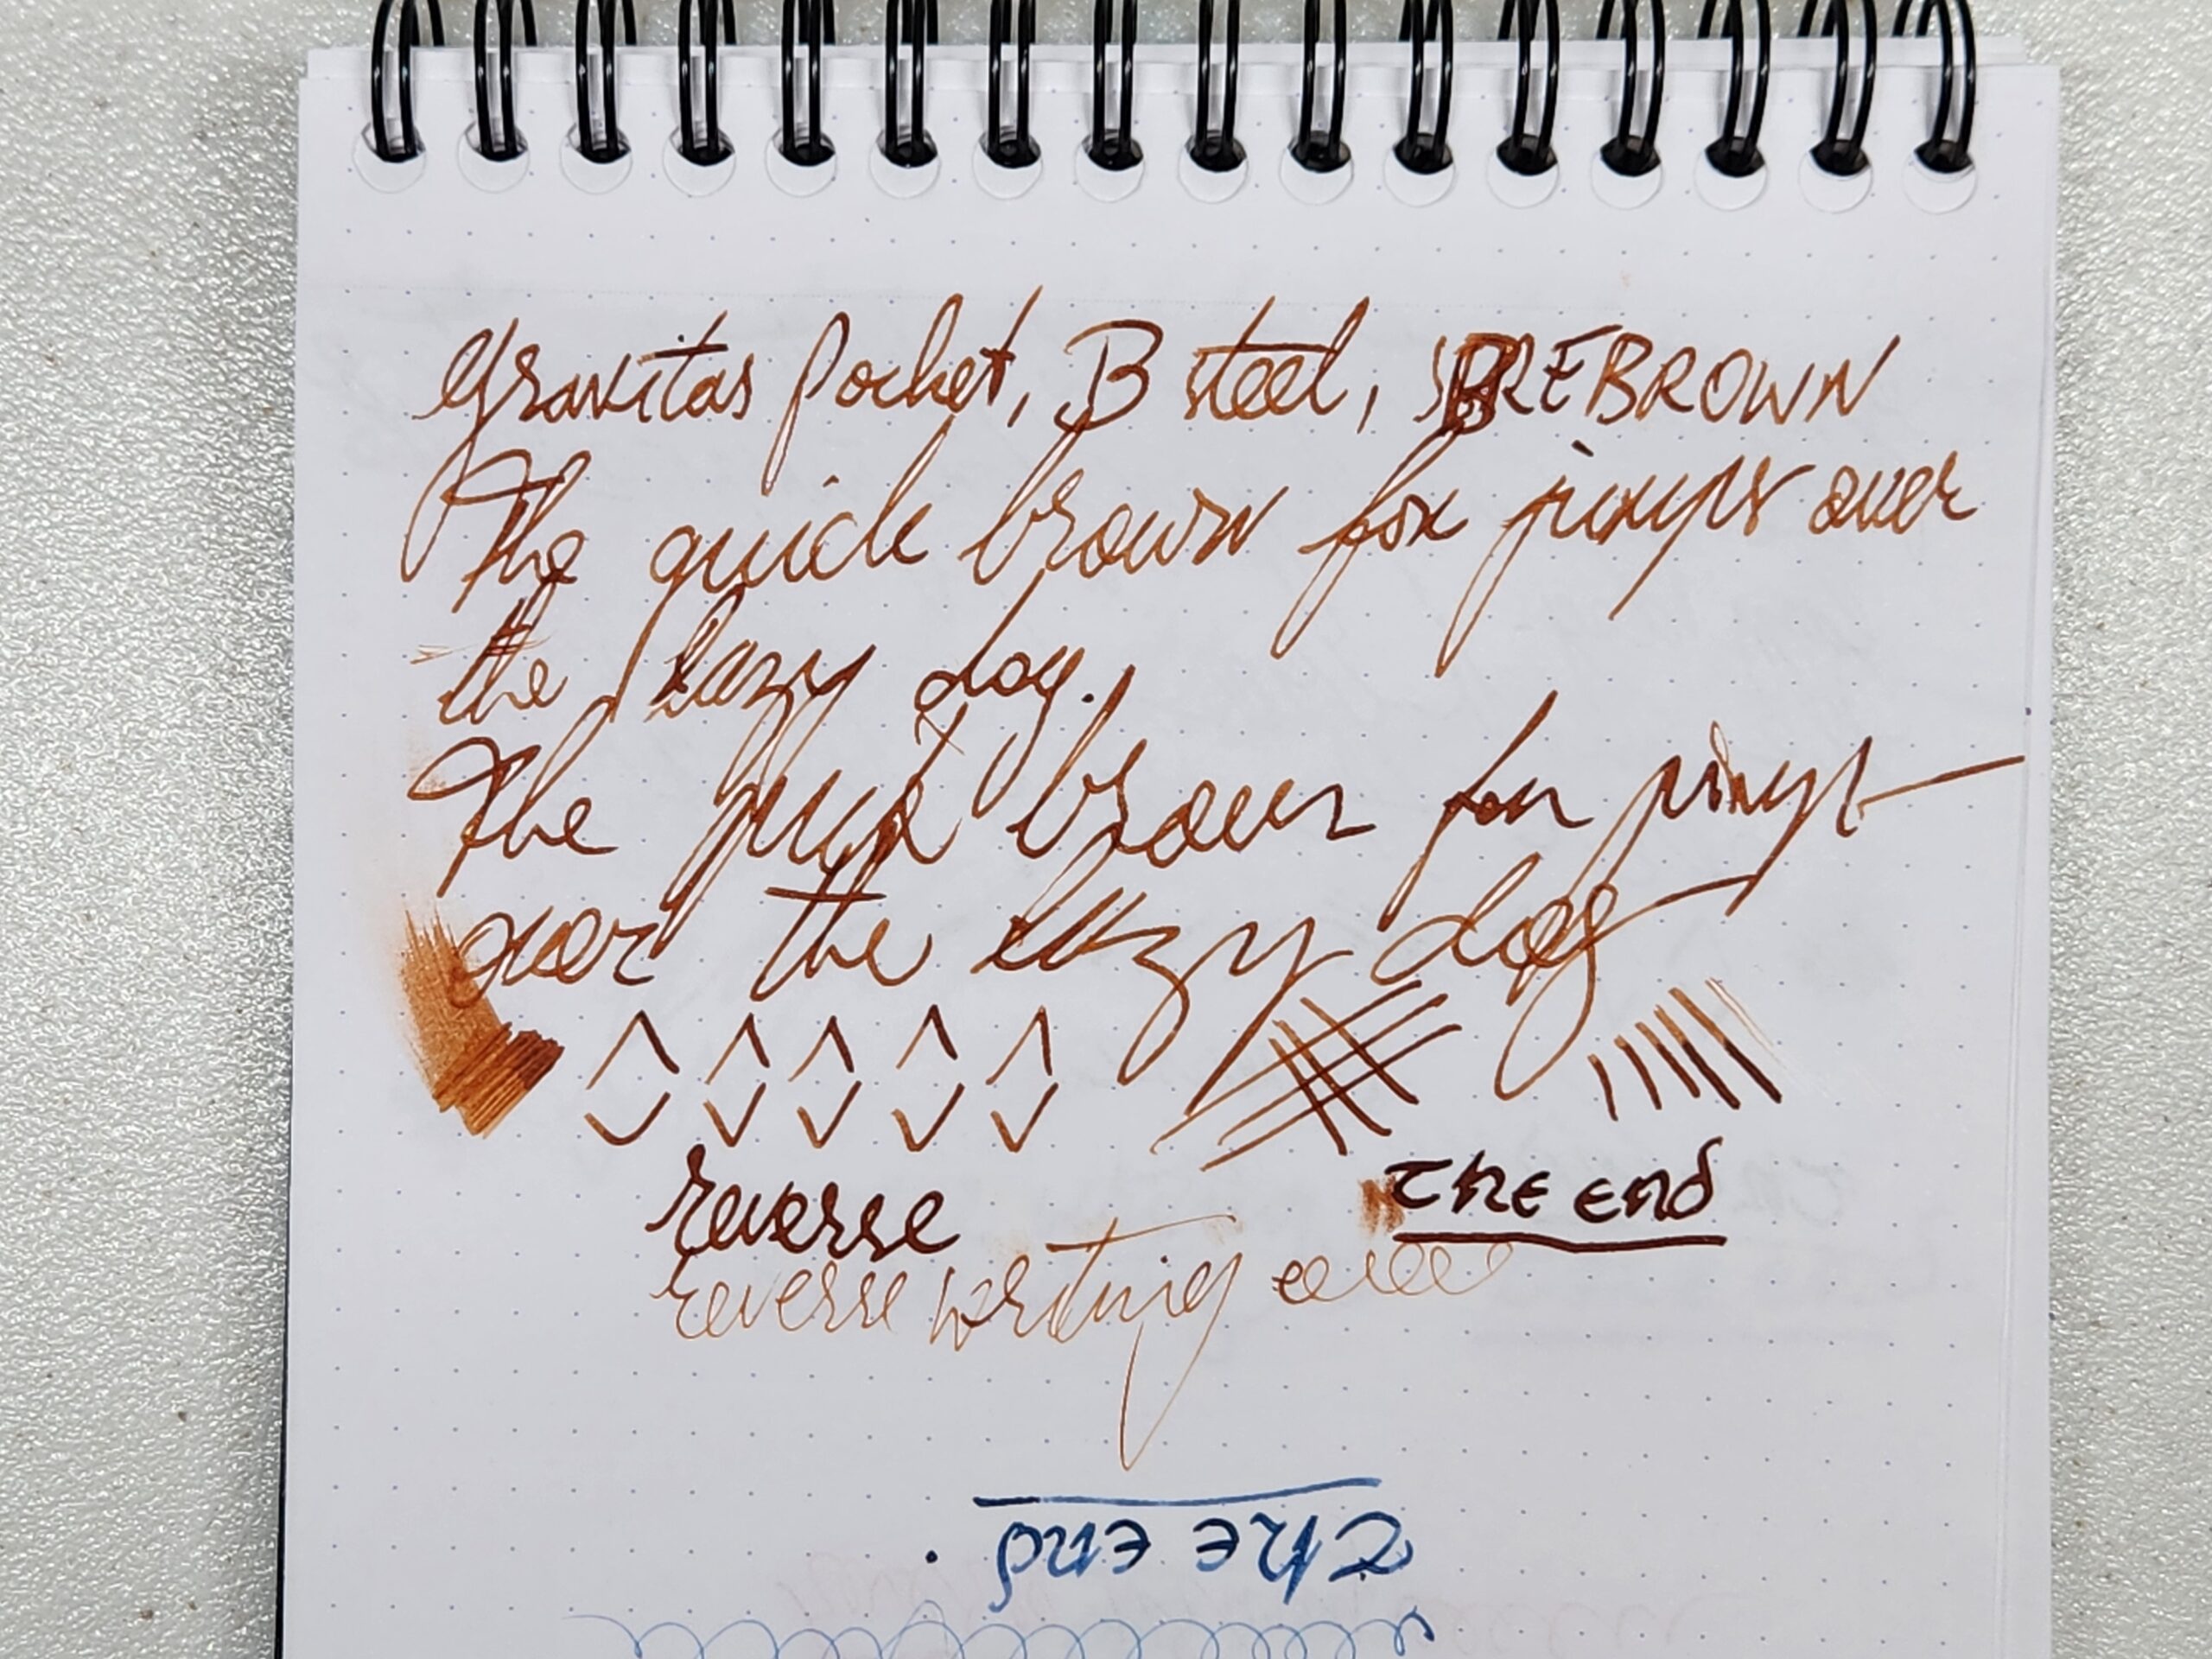 Gravitas Pocket, B steel, SBREBROWN
The quick brown fox jumps over
the lazy dog.
The quick brown fox jumps
over the lazy dog
reverse
THE END
reverse writing eeeee
THE END.